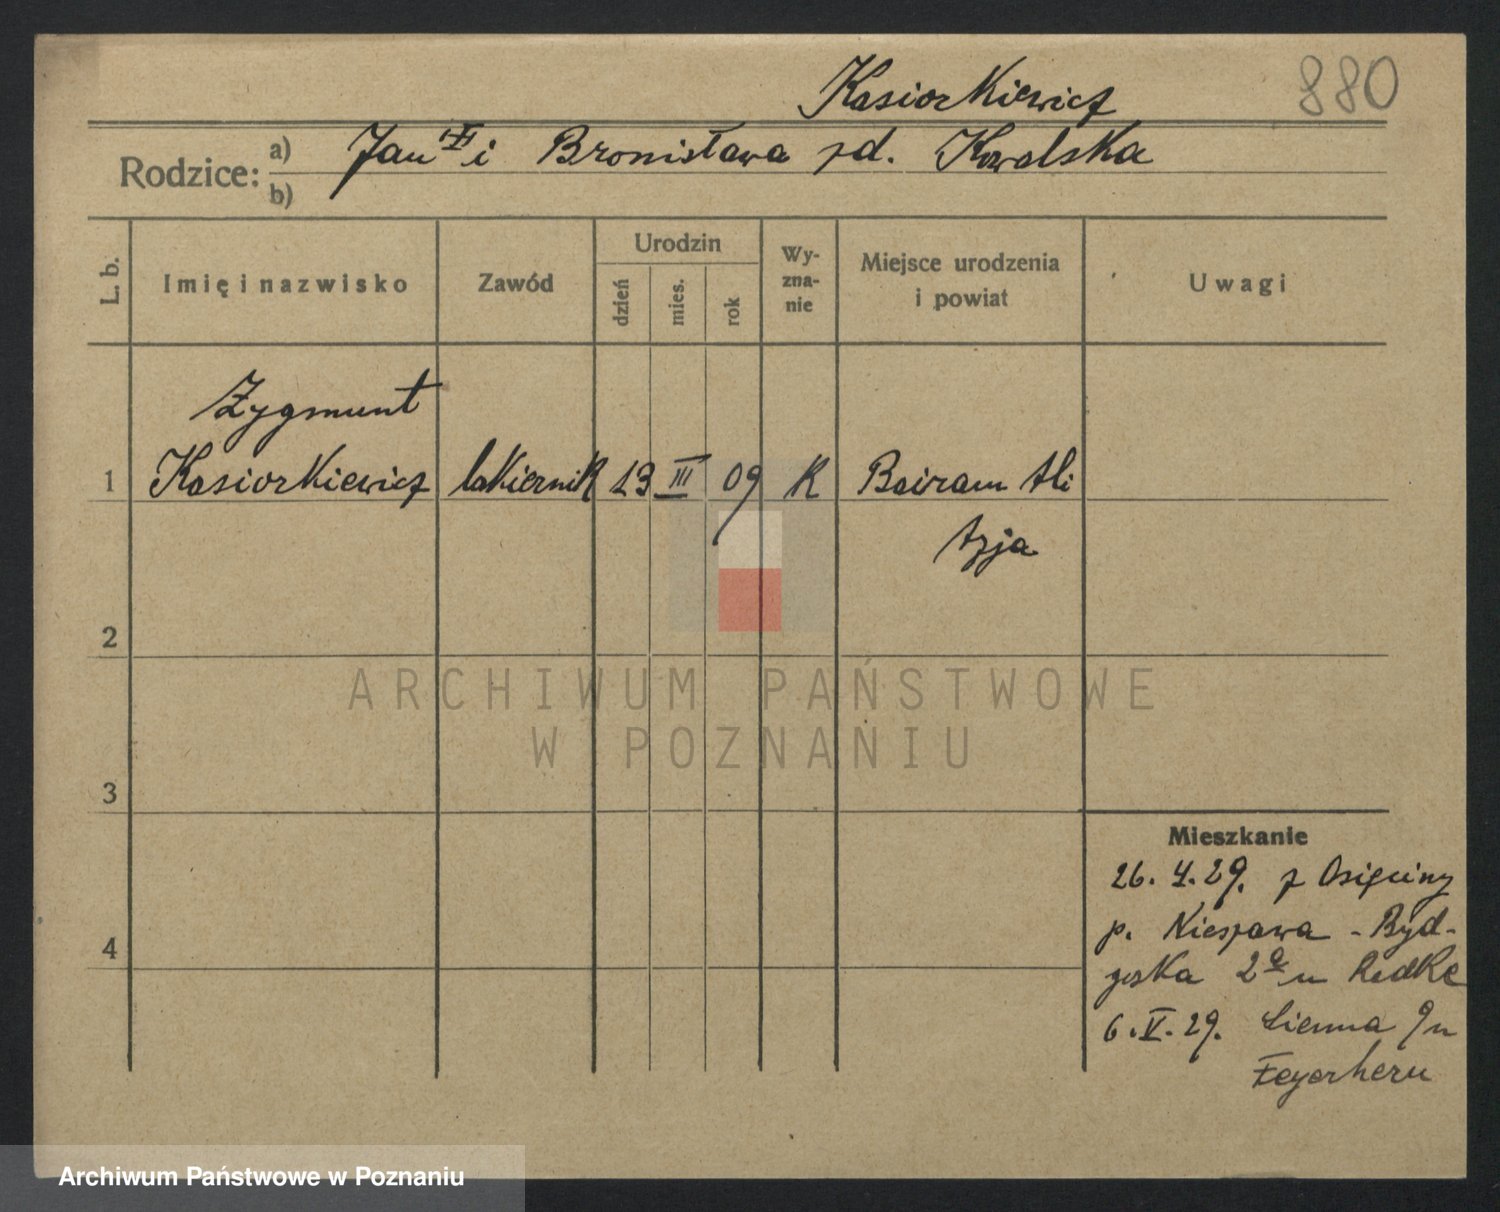 880
Kasiorkiewicz
Rodzice: a) Jan i Bronisława zd. Kowalska
b)
L. b. Imię i nazwisko Zawód Urodzin dzień mies. rok Wy-zna-nie Miejsce urodzenia i powiat Uwagi
Zygmunt
1 Kasiorkiewicz lakiernik 23 III 09 K Bairam Ali
Azja
2
ARCHIWUM PAŃSTWOWE
W POZNANIU
3
Mieszkanie
26. 4. 29. z Osięciny
p. Nieszawa - Byd-
4
goska 2a u Radke
6. V. 29. Sienna 9 u
Feyerherm
Archiwum Państwowe w Poznaniu